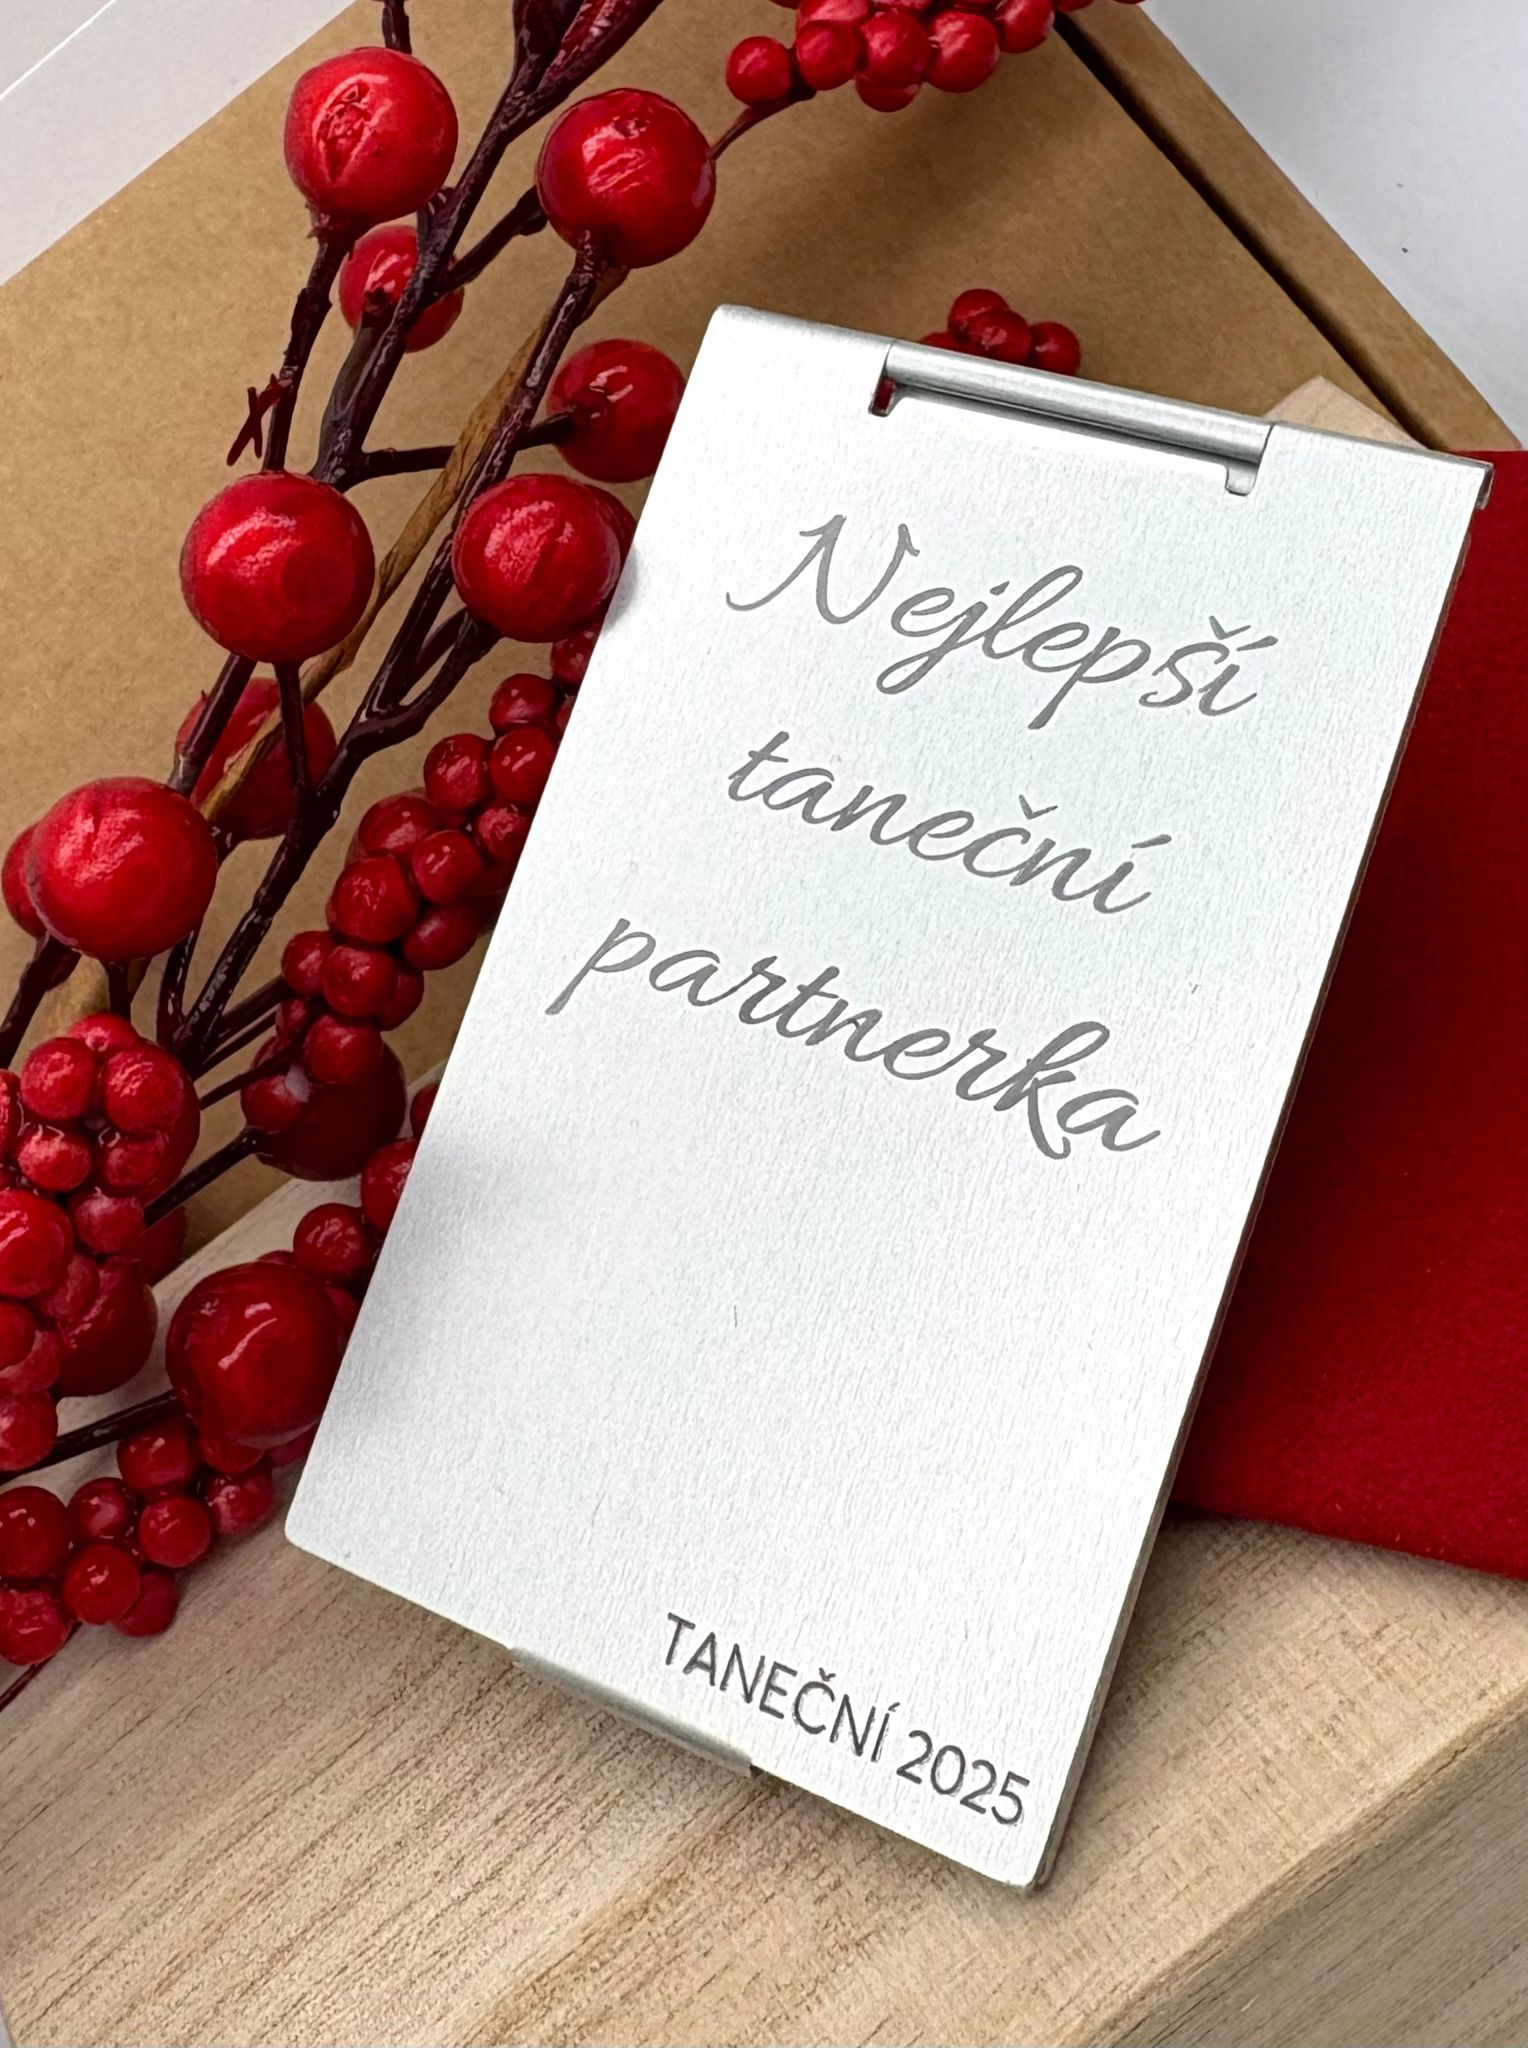 Nejlepší
taneční
partnerka
TANEČNÍ 2025